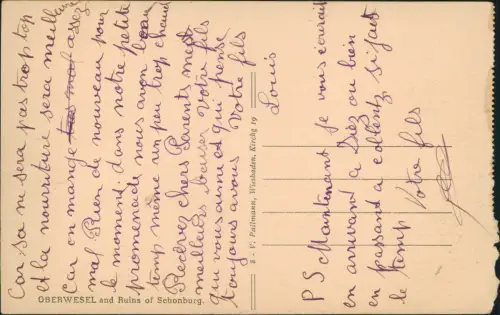 Car sa ni sera pas trop top
et la nourriture sera meilleur
Car on mange assez
mal Rien de nouveau pour
le moment. dans notre petite
promenade nous avon beau
temp même un peu trop chaud
Recevez chers Parents mes
meilleurs baiser Votre fils
qui vous aime et qui pense
toujours a vous Votre fils
Louis
OBERWESEL and Ruins of Schonburg.
3 - V. Pallmann, Wiesbaden, Kirchg 19
P S Maintenant je vous écrirait
en arrivant a Diez ou bien
en passant a coblentz si jait
le temp Votre fils